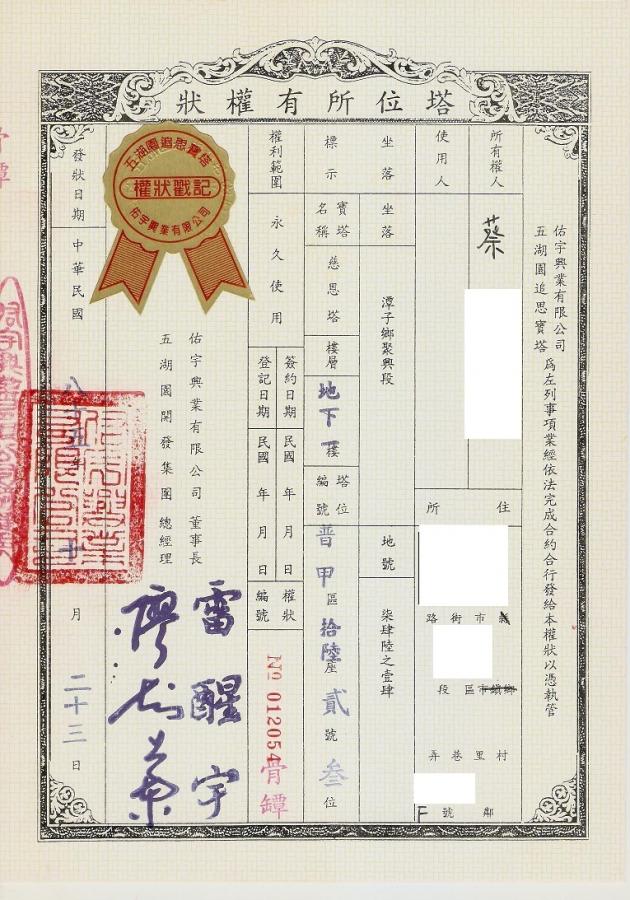 塔位所有權狀
佑宇興業有限公司
五湖園追思寶塔
為左列事項業經依法完成合約合行發給本權狀以憑執管
所有權人
蔡
使用人
住所
縣市街路
鄉鎮市區段
村里巷弄
鄰號F
坐落
坐落
潭子鄉聚興段
地號
柒肆陸之壹肆
標示
寶塔名稱
慈恩塔
樓層
地下一樓
塔位編號
普甲區拾陸座貳號叁位
權利範圍
永久使用
簽約日期
民國 年 月 日
登記日期
民國 年 月 日
權狀編號
№ 012054
骨罈
佑宇興業有限公司 董事長
雷醒宇
五湖園開發集團 總經理
五湖園追思寶塔
權狀戳記
佑宇興業有限公司
發狀日期
中華民國八十五年十月二十三日
骨罈